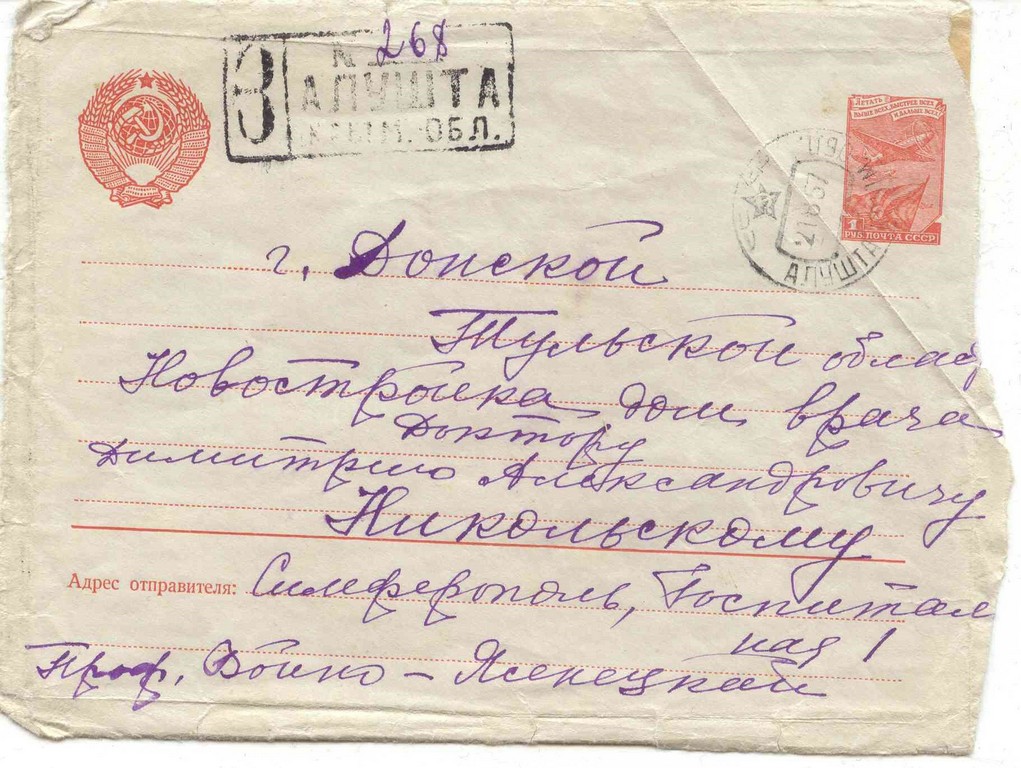 З
№ 268
АЛУШТА
КРЫМ. ОБЛ.
ЛЕТАТЬ
ВЫШЕ ВСЕХ, БЫСТРЕЕ ВСЕХ
И ДАЛЬШЕ ВСЕХ!
1 РУБ. ПОЧТА СССР
АЛУШТА
57
г. Донской
Тульской облас
Новостройка дом врача
Доктору
Димитрию Александровичу
Никольскому
Адрес отправителя: Симферополь, Госпитал
ная 1
Проф. Войно - Ясенецкой